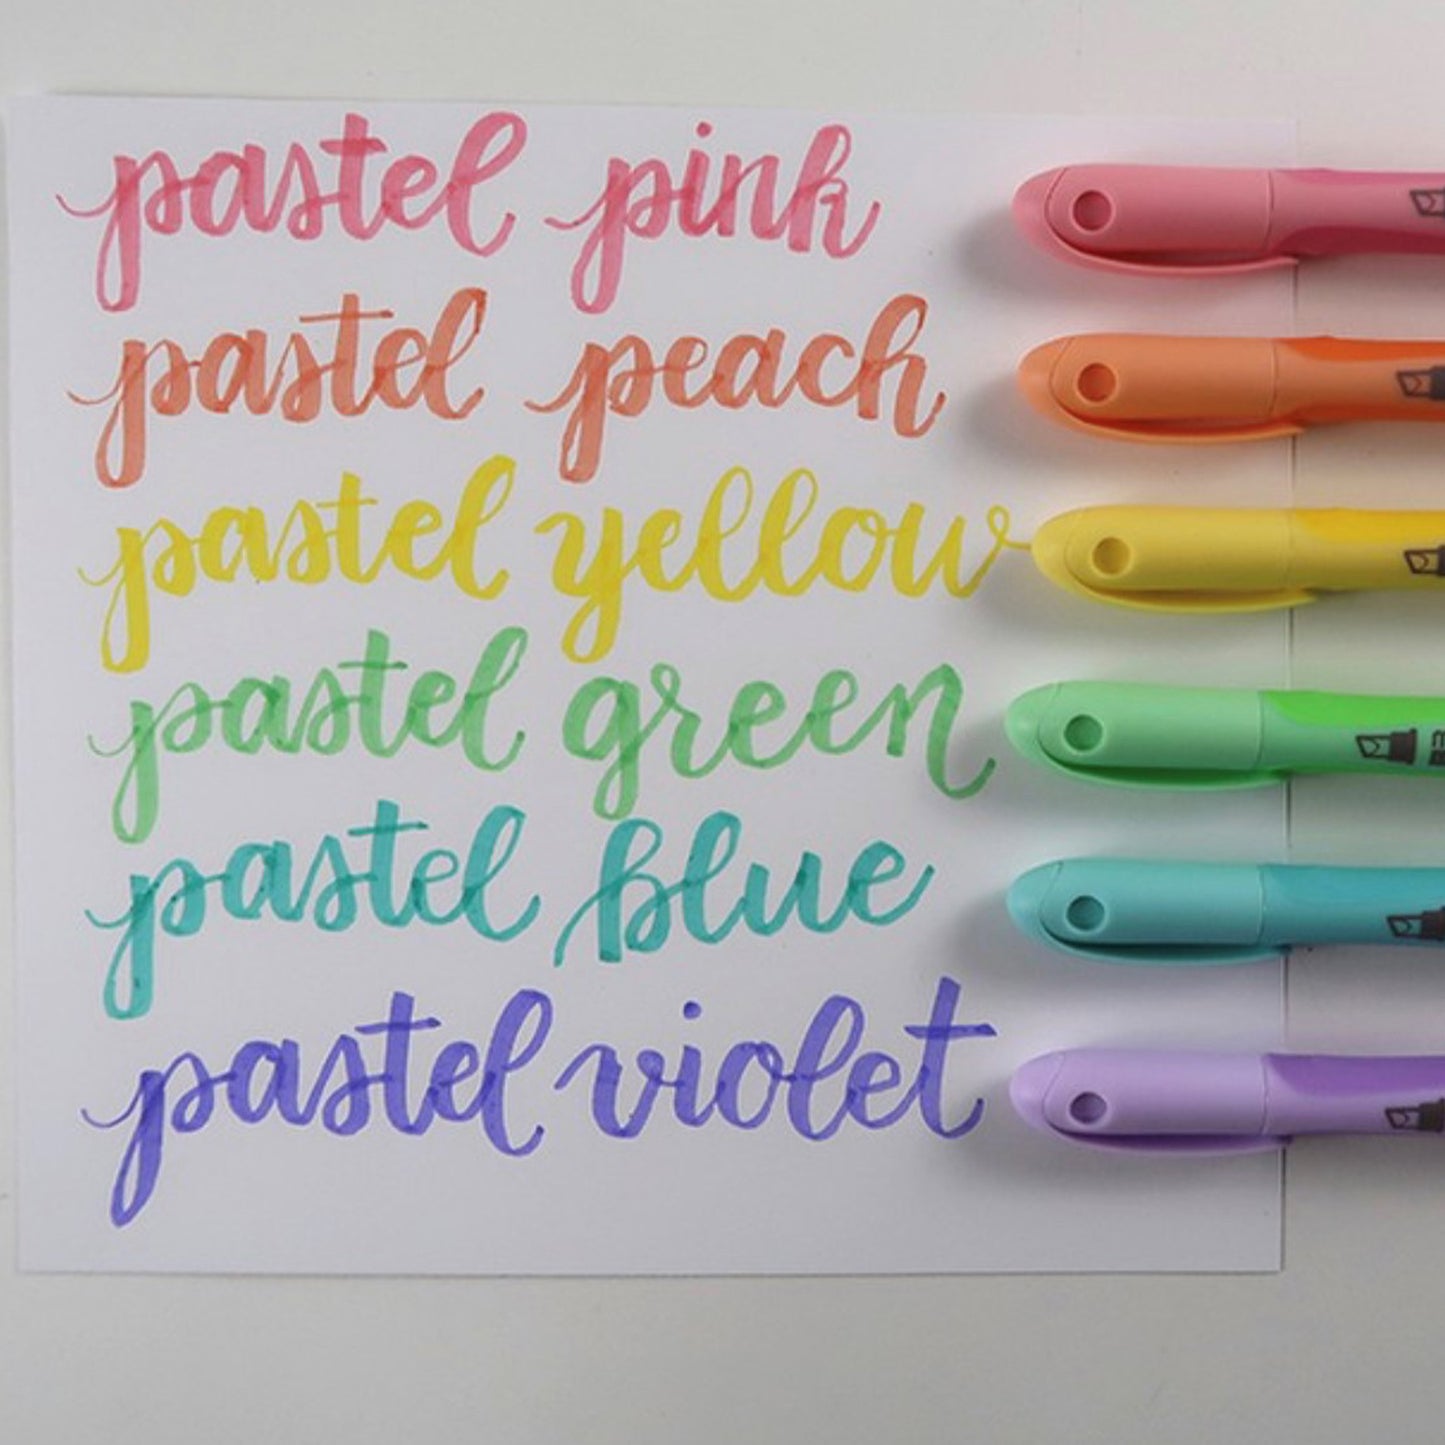 pastel pink
pastel peach
pastel yellow
pastel green
pastel blue
pastel violet